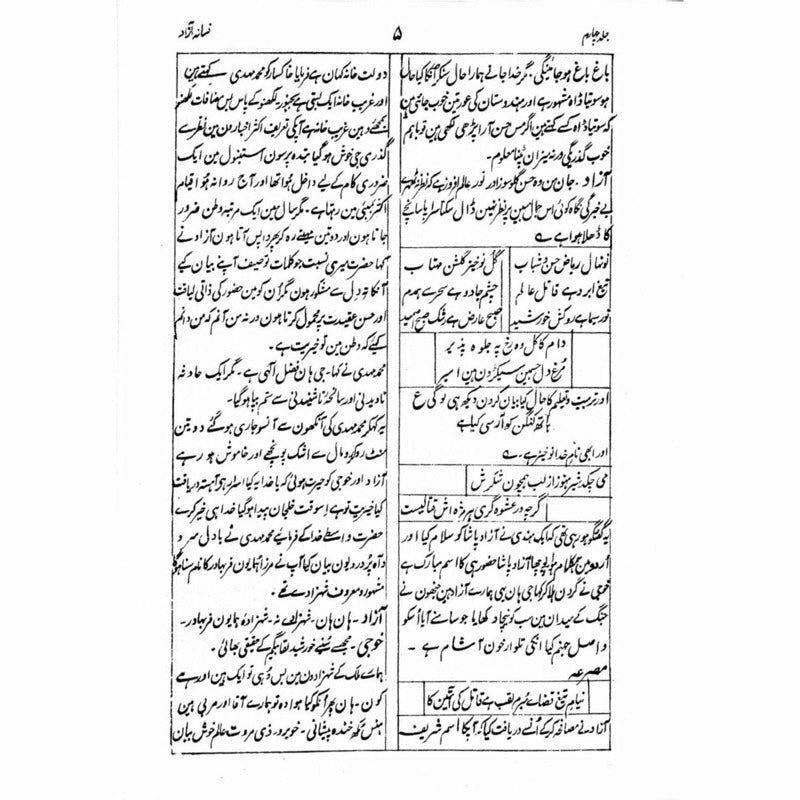 جلد چہارم
۵
فسانہ آزاد
باغ باغ ہو جائینگی۔ مگر خدا جانے ہمارا حال سنکر انکا کیا حال
ہو سوتیا ڈاہ مشہور ہے اور ہندوستان کی عورتین خوب جانتی ہین
کہ سوتیا ڈاہ کسے کہتے ہین اگر مس حسن آرا پڑھی لکھی ہین تو باہم
خوب گذریگی ورنہ میزان پٹنا معلوم۔
آزاد۔ جان من وہ حسن گلوسوز اور نور عالم افروز ہے کہ نظر نہ ٹھہرے
بے خیرگی نگاہ کوئی اس جمال مبین پر نظر نہین ڈال سکتا سراپا سانچے
کا ڈھلا ہوا ہے ؎
نونہال ریاض حسن و شباب
گل نوخیز گلشن مہتاب
تیغ ابرو ہے قاتل عالم
چشم جادو ہے سحر سے ہمدم
نور سیما ہے روکش خورشید
صبح عارض ہے رشک صبح امید
دام کاکل وہ رخ پہ جلوہ پذیر
مرغ دل جسمین سیکڑون ہین اسیر
اور تربیت و تعلیم کا حال کیا بیان کرون دیکھ ہی لوگی ع
ہاتھ کنگن کو آرسی کیا ہے
اور ابھی نام خدا نوخیز ہے ؎
می چکد شیر ہنوز از لب ہمچون شکرش
گرچہ در عشوہ گری ہر مژہ اش قتالیست
یہ گفتگو ہو رہی تھی کہ ایک ہندی نے آزاد پاشا کو سلام کیا اور
اردو مین ہمکلام ہو پوچھا آزاد پاشا حضور ہی کا اسم مبارک ہے
خوجی نے گردن ہلا کر کہا جی ہان یہی ہمارے آزاد ہین جنھون نے
جنگ کے میدان مین سب کو نیچا دکھایا جو سامنے آیا اُسکو
واصل جہنم کیا انکی تلوار خون آشام ہے۔
مصرعہ
نیام تیغ قضائے مبرم لقب ہے قاتل کی آستین کا
آزاد نے مصافحہ کر کے اُنسے دریافت کیا کہ آپکا اسم شریف
دولت خانہ کہان ہے فرمایا خاکسار کو محمد مہدی کہتے ہین
اور غریب خانہ ایک بستی ہے بجنور لکھنؤ کے پاس بس مضافات لکھنؤ
سمجھئے وہین غریب خانہ ہے آپکی تعریف اکثر اخبار مین نظر سے
گذری جی خوش ہو گیا بندہ پرسون استنبول مین ایک
ضروری کام کے لیے داخل ہوا تھا اور آج روانہ ہوا قیام
اکثر بمبئی مین رہتا ہے۔ مگر سال مین ایک مرتبہ وطن ضرور
جاتا ہون اور دو تین مہینے رہ کر پھر واپس آتا ہون آزاد نے
کہا حضرت میری نسبت جو کلمات توصیف آپنے بیان کیے
انکا تہ دل سے مشکور ہون مگر اُن کو مین حضور کی ذاتی لیاقت
اور حسن عقیدت پر محمول کرتا ہون ورنہ من آنم کہ من دانم
کہیے کہ وطن مین تو خیریت ہے۔
محمد مہدی نے کہا۔ جی ہان فضل الٰہی ہے۔ مگر ایک حادثہ
نادیدنی اور سانحۂ ناشنیدنی سے ستم بپا ہو گیا۔
یہ کہکر محمد مہدی کی آنکھون سے آنسو جاری ہو گئے دو تین
منٹ رو کر رومال سے اشک پونچھے اور خاموش ہو رہے
آزاد اور خوجی کو حیرت ہوئی کہ یا خدا یہ کیا اسرار ہے آہستہ دریافت
کیا خیریت تو ہے اسوقت خلجان پیدا ہو گیا خدا ہی خیر کرے
حضرت واسطے خدا کے فرمایئے محمد مہدی نے بادل سرد
و آہ پر درد یون بیان کیا آپ نے مرزا ہمایون فر بہادر کا نام سنا ہوگا
مشہور و معروف شہزادے تھے۔
آزاد۔ ہان ہان۔ شہزادے نہ۔ شہزادہ ہمایون فر بہادر۔
خوجی۔ مجھسے سنیے خورشید لقا بیگم کے حقیقی بھائی۔
ہمارے ملک کے شہزادون مین بس وہی تو ایک ہین اور ہے
کون۔ ہان پھر آنکو کیا ہوا وہ تو ہمارے آقا اور مربی ہین
ہنس مکھ خندہ پیشانی۔ خوبرو۔ ذی مروت عالم خوش بیان